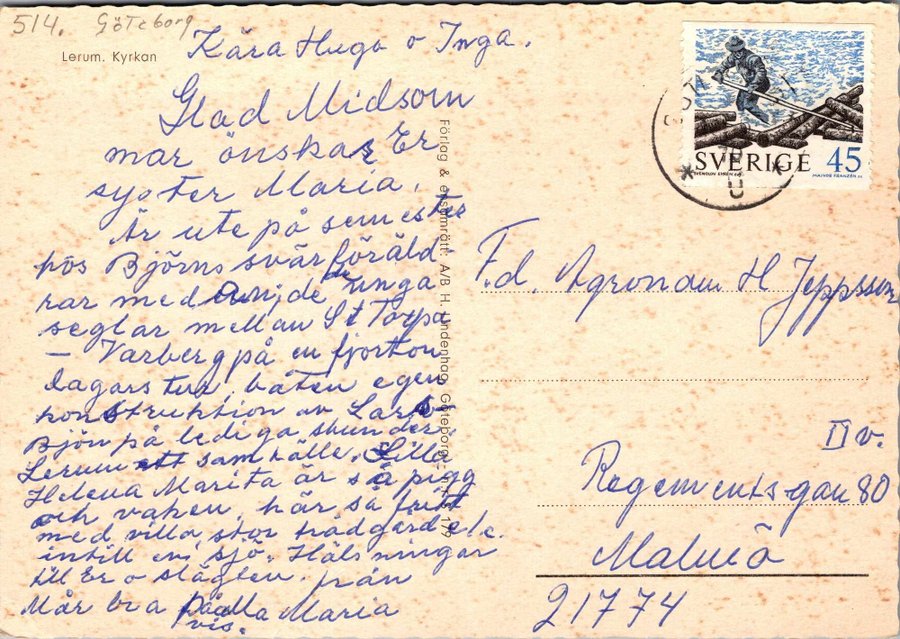 514. Göteborg
Lerum. Kyrkan
Kära Hugo o Inga.
Glad Midsom
mar önskar Er
syster Maria.
Är ute på semester
hos Björns svärföräld-
rar med de unga
seglar mellan St Torpa
– Varberg på en fjorton
dagars tur, båten egen
konstruktion av Lars
Björn på lediga stunder.
Lerum ett samhälle. Lilla
Helena Marita är så pigg
och vaken, här så fritt
med villa stor trädgård etc.
intill en sjö. Hälsningar
till Er o släkten. från
Mår bra på alla Maria
vis.
Förlag & ensamrätt: A/B H. Lindenhag, Göteborg
179
SVERIGE 45
F.d. Agronom H Jeppsson
II v.
Regementsgatan 80
Malmö
21774